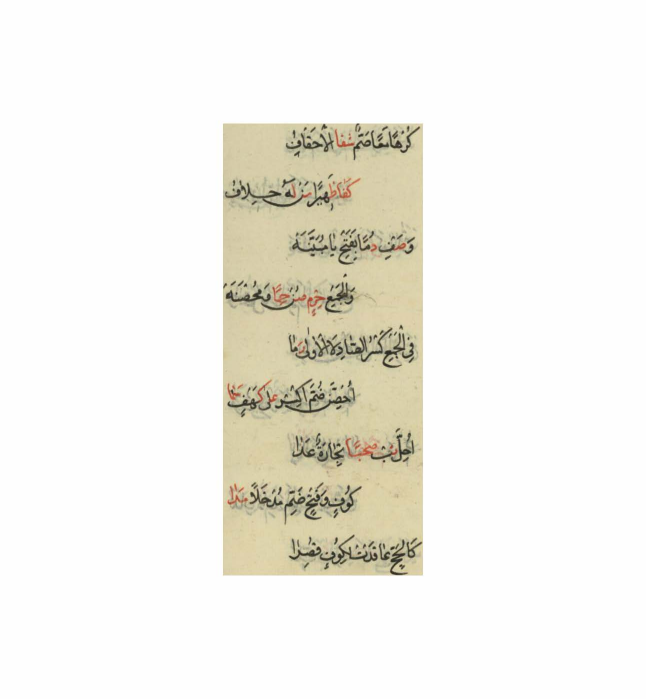 كُرْهًا مَعًا ضَمٌّ شَفَا الْأَحْقَافِ
كَفَا ظَهِيرًا مَنْ لَهُ خِلَافِ
وَصِفْ دُمًا بِفَتْحِ يَا مُبَيِّنَهْ
وَالْجَمْعُ حِرْمٍ صُنْ حِمًا وَمُحْصَنَهْ
فِي الْجَمْعِ كَسْرُ الصَّادِ لَا الْأُولَى رَمَا
أُحْصِنَّ ضُمَّ اكْسِرْ عَلَى كَهْفٍ سَمَا
أُحِلَّ ثُبْ صَحْبًا تِجَارَةٌ عَدَا
كُوفٍ وَفَتْحُ ضَمِّ مُدْخَلًا مَدَا
كَالْحَجِّ عَاقَدَتْ لِكُوفٍ قُصِرَا